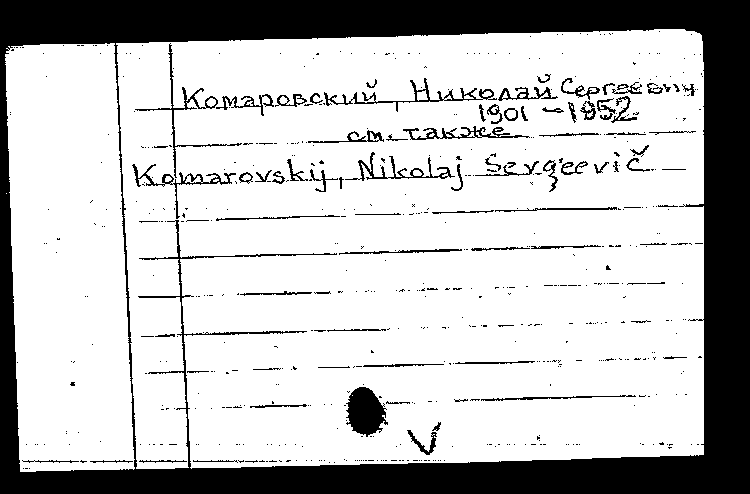 Комаровский, Николай Сергеевич
1901 - 1952
см. также
Komarovskij, Nikolaj Sergeevič
V